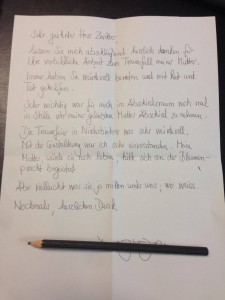 Sehr geehrter Herr Zeidler,
lassen Sie mich abschließend herzlich danken für
Ihre vorbildliche Arbeit zum Trauerfall meiner Mutter.
Immer haben Sie würdevoll beraten und mit Rat und
Tat geholfen.
Sehr wichtig war für mich im Abschiedsraum noch mal
in Stille von meiner geliebten Mutter Abschied zu nehmen.
Die Trauerfeier in war sehr würdevoll.
Mit der Gestaltung war ich sehr einverstanden. Meine
Mutter, würde sie noch leben, hätte sich an der Blumen-
pracht begeistert.
Aber vielleicht war sie ja mitten unter uns, wer weiß.
Nochmals, herzlichen Dank